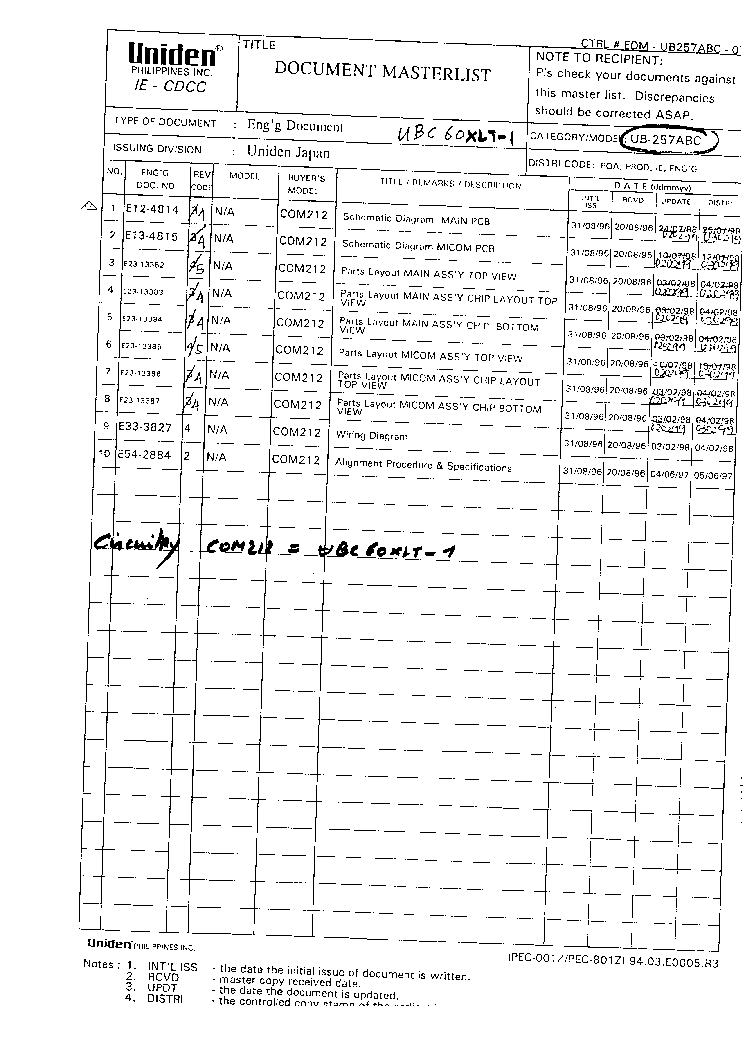 CTRL # EDM - UB257ABC - 0
Uniden®
PHILIPPINES INC.
IE - CDCC
TITLE
DOCUMENT MASTERLIST
NOTE TO RECIPIENT:
Pls check your documents against
this master list. Discrepancies
should be corrected ASAP.
TYPE OF DOCUMENT : Eng'g Document
UBC 60XLT-1
CATEGORY/MODEL UB-257ABC
ISSUING DIVISION : Uniden Japan
DISTRI CODE: PQA, PROD, IE, ENG'G
NO. ENG'G DOC. NO REV CODE MODEL BUYER'S MODEL TITLE / REMARKS / DESCRIPTION DATE (ddmmyy)
INT'L ISS RCVD UPDATE DISTRI
1 E12-4814 A N/A COM212 Schematic Diagram MAIN PCB 31/08/96 20/08/96
2 E13-4815 A N/A COM212 Schematic Diagram MICOM PCB 31/08/96 20/08/96
3 E23-13382 5 N/A COM212 Parts Layout MAIN ASS'Y TOP VIEW 31/08/96 20/08/96 03/02/98 04/02/98
4 A N/A COM212 Parts Layout MAIN ASS'Y CHIP LAYOUT TOP VIEW 31/08/96 20/08/96 04/02/98
5 E23-13384 A N/A COM212 Parts Layout MAIN ASS'Y CHIP BOTTOM VIEW 31/08/96 20/08/96 04/02/98
6 E23-13385 5 N/A COM212 Parts Layout MICOM ASS'Y TOP VIEW 31/08/96 20/08/96
7 E23-13386 A N/A COM212 Parts Layout MICOM ASS'Y CHIP LAYOUT TOP VIEW 31/08/96 20/08/96 03/02/98 04/02/98
8 E23-13387 A N/A COM212 Parts Layout MICOM ASS'Y CHIP BOTTOM VIEW 31/08/96 20/08/96 03/02/98 04/02/98
9 E33-3827 4 N/A COM212 Wiring Diagram 31/08/96 20/08/96 03/02/98 04/02/98
10 E54-2884 2 N/A COM212 Alignment Procedure & Specifications 31/08/96 20/08/96 04/06/97 05/06/97
COM212 = UBC 60XLT-1
Uniden PHILIPPINES INC.
Notes : 1. INT'L ISS - the date the initial issue of document is written.
2. RCVD - master copy received date.
3. UPDT - the date the document is updated.
4. DISTRI - the controlled copy stamp of the